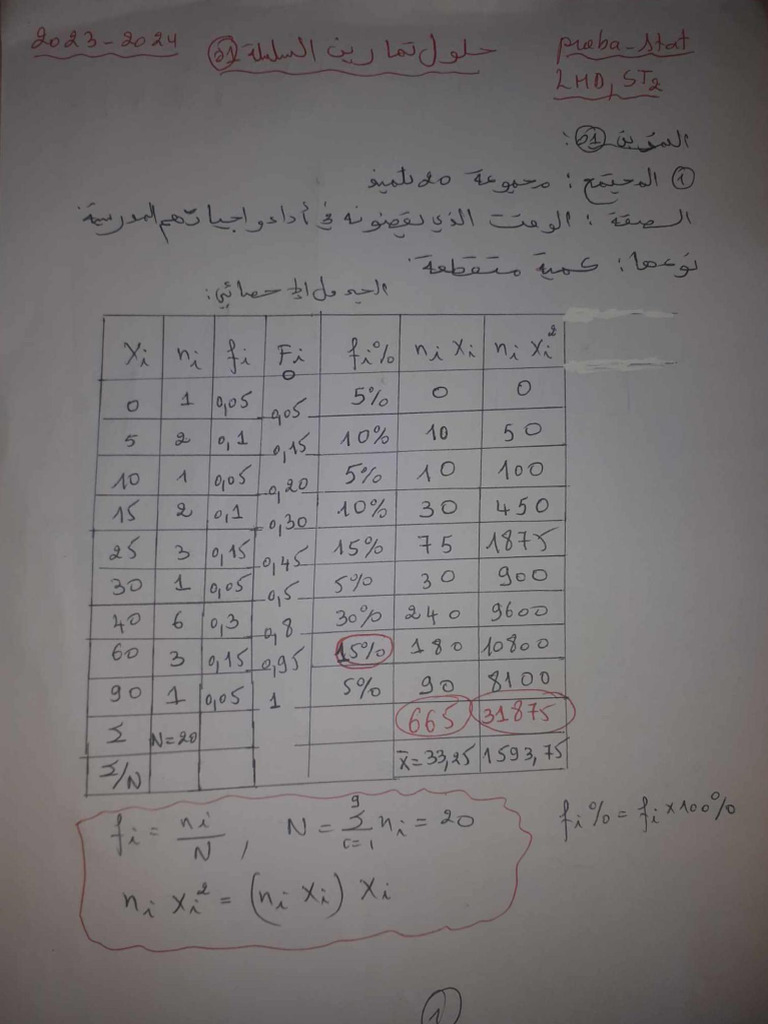 2023-2024 حلول تمارين السلسلة 01 proba-stat
LMD, ST2
التمرين 01:
1 المجتمع: مجموعة 20 تلميذ
الصفة: الوقت الذي يقضونه في أداء واجباتهم المدرسية.
نوعها: كمية متقطعة.
الجدول الإحصائي:
Xi ni fi Fi fi% ni Xi ni Xi²
0
0 1 0,05 0,05 5% 0 0
5 2 0,1 0,15 10% 10 50
10 1 0,05 0,20 5% 10 100
15 2 0,1 0,30 10% 30 450
25 3 0,15 0,45 15% 75 1875
30 1 0,05 0,5 5% 30 900
40 6 0,3 0,8 30% 240 9600
60 3 0,15 0,95 15% 180 10800
90 1 0,05 1 5% 90 8100
Σ N=20 665 31875
Σ/N x̄=33,25 1593,75
fi = ni/N , N = Σ(i=1 → 9) ni = 20 fi% = fi×100%
ni xi² = (ni xi) xi
1